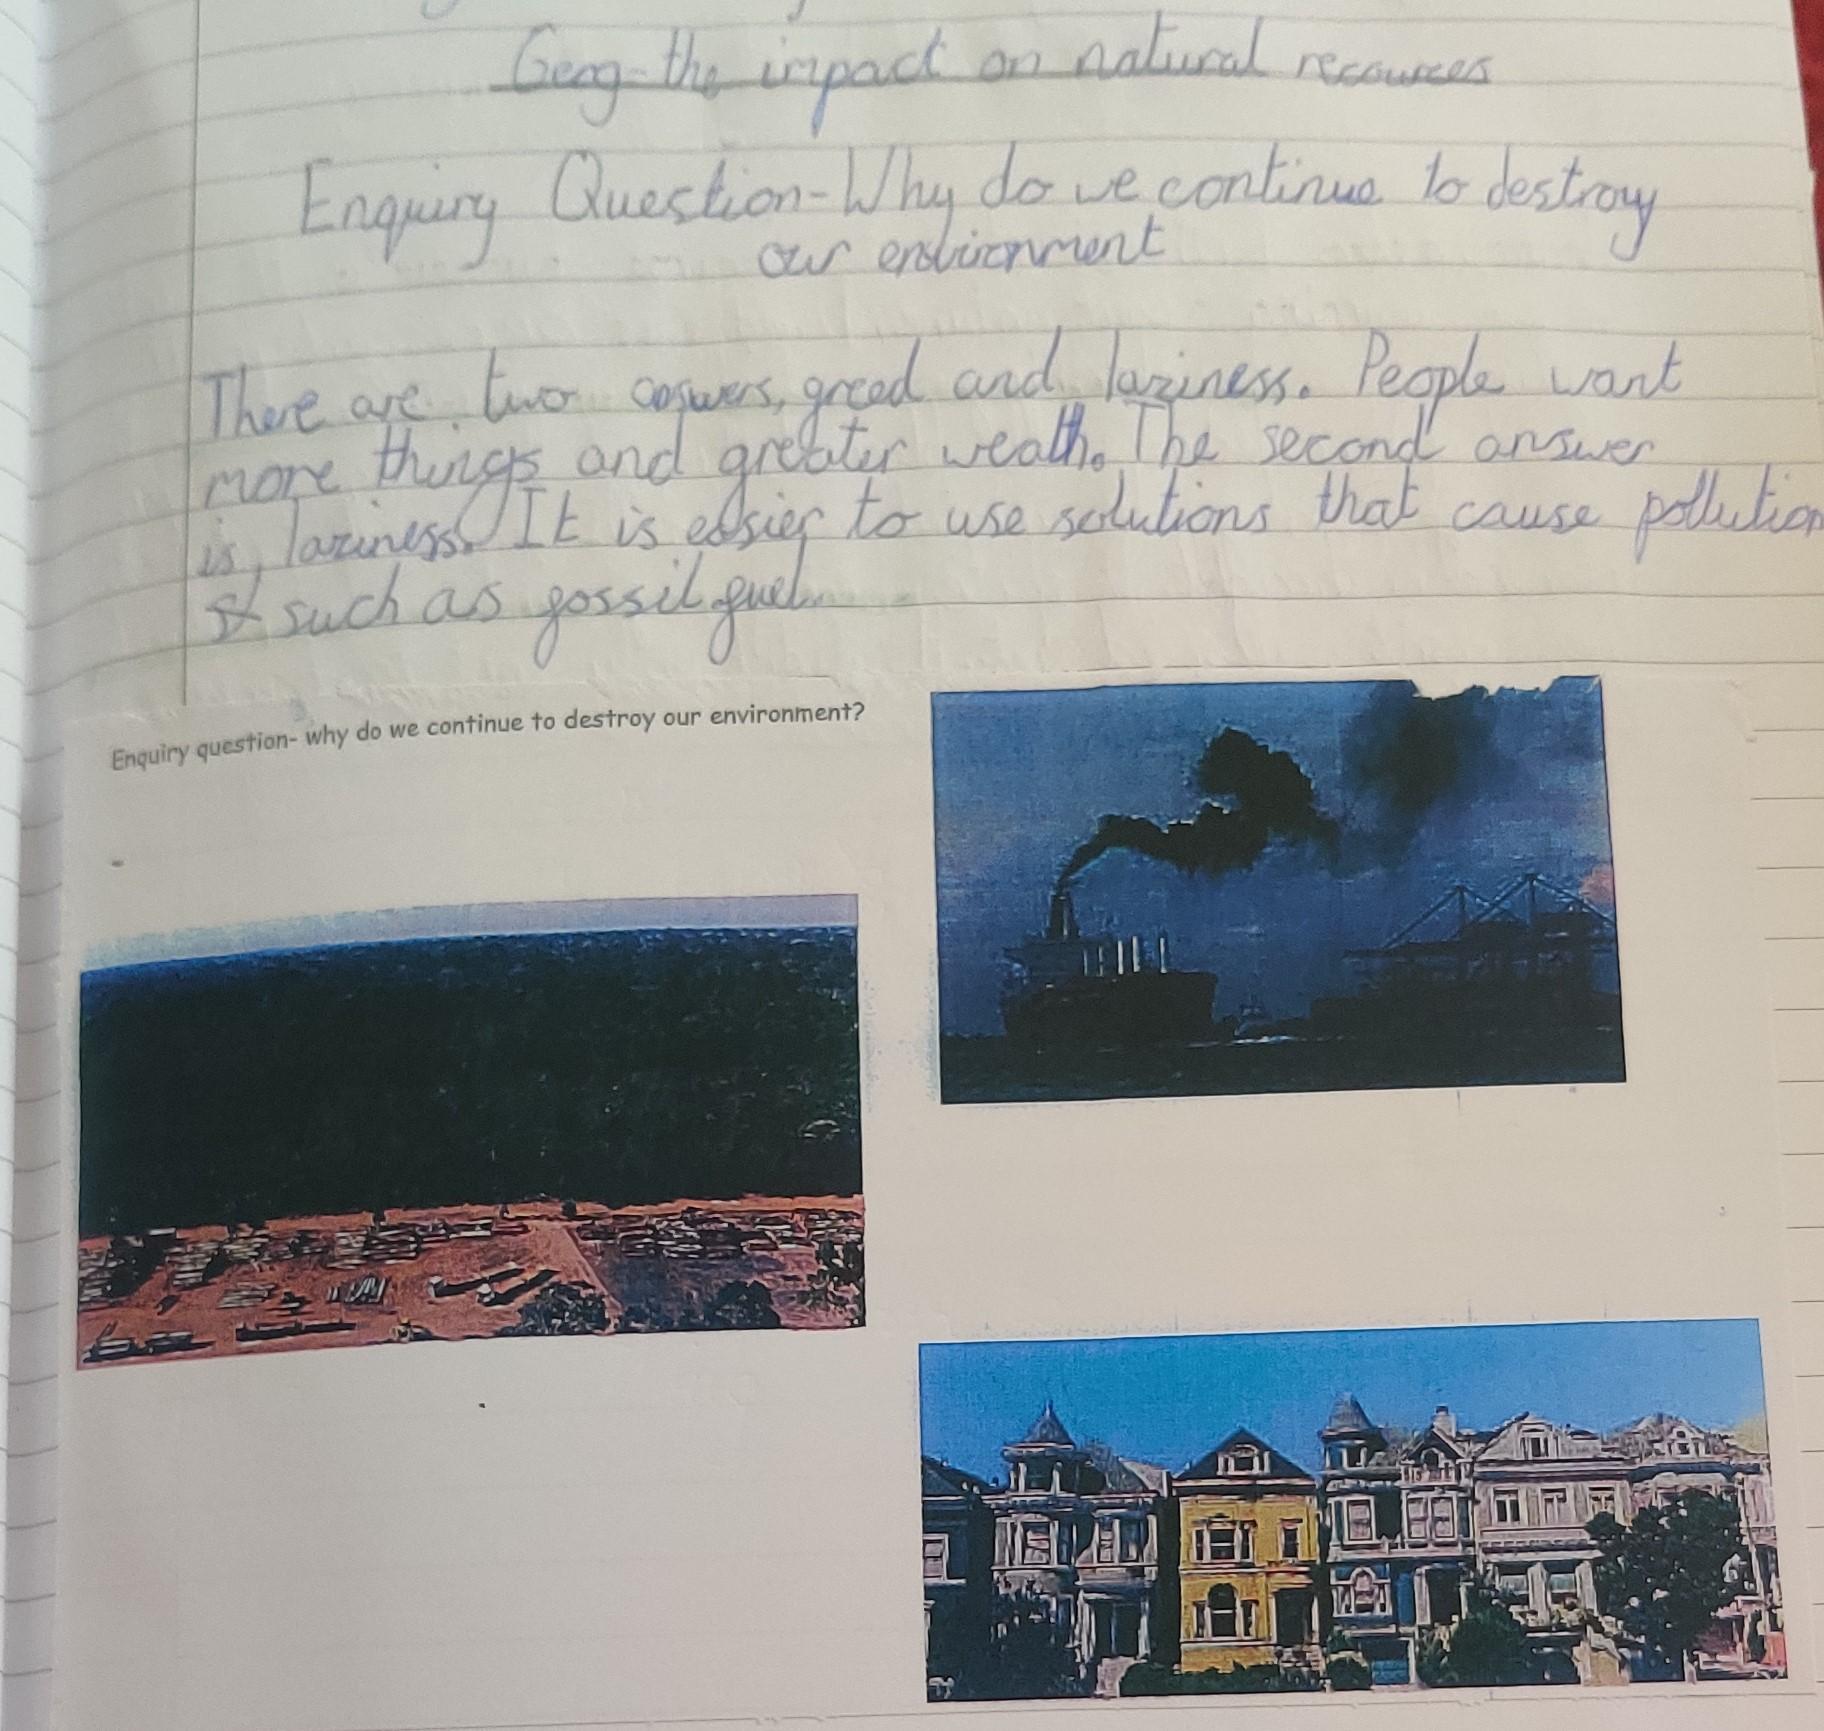 Geog-the impact on natural recources
Enquiry Question-Why do we continue to destroy
our environment
There are two answers, greed and laziness. People want
more things and greater wealth. The second answer
is, laziness. It is easier to use solutions that cause pollution
such as fossil fuel.
Enquiry question- why do we continue to destroy our environment?